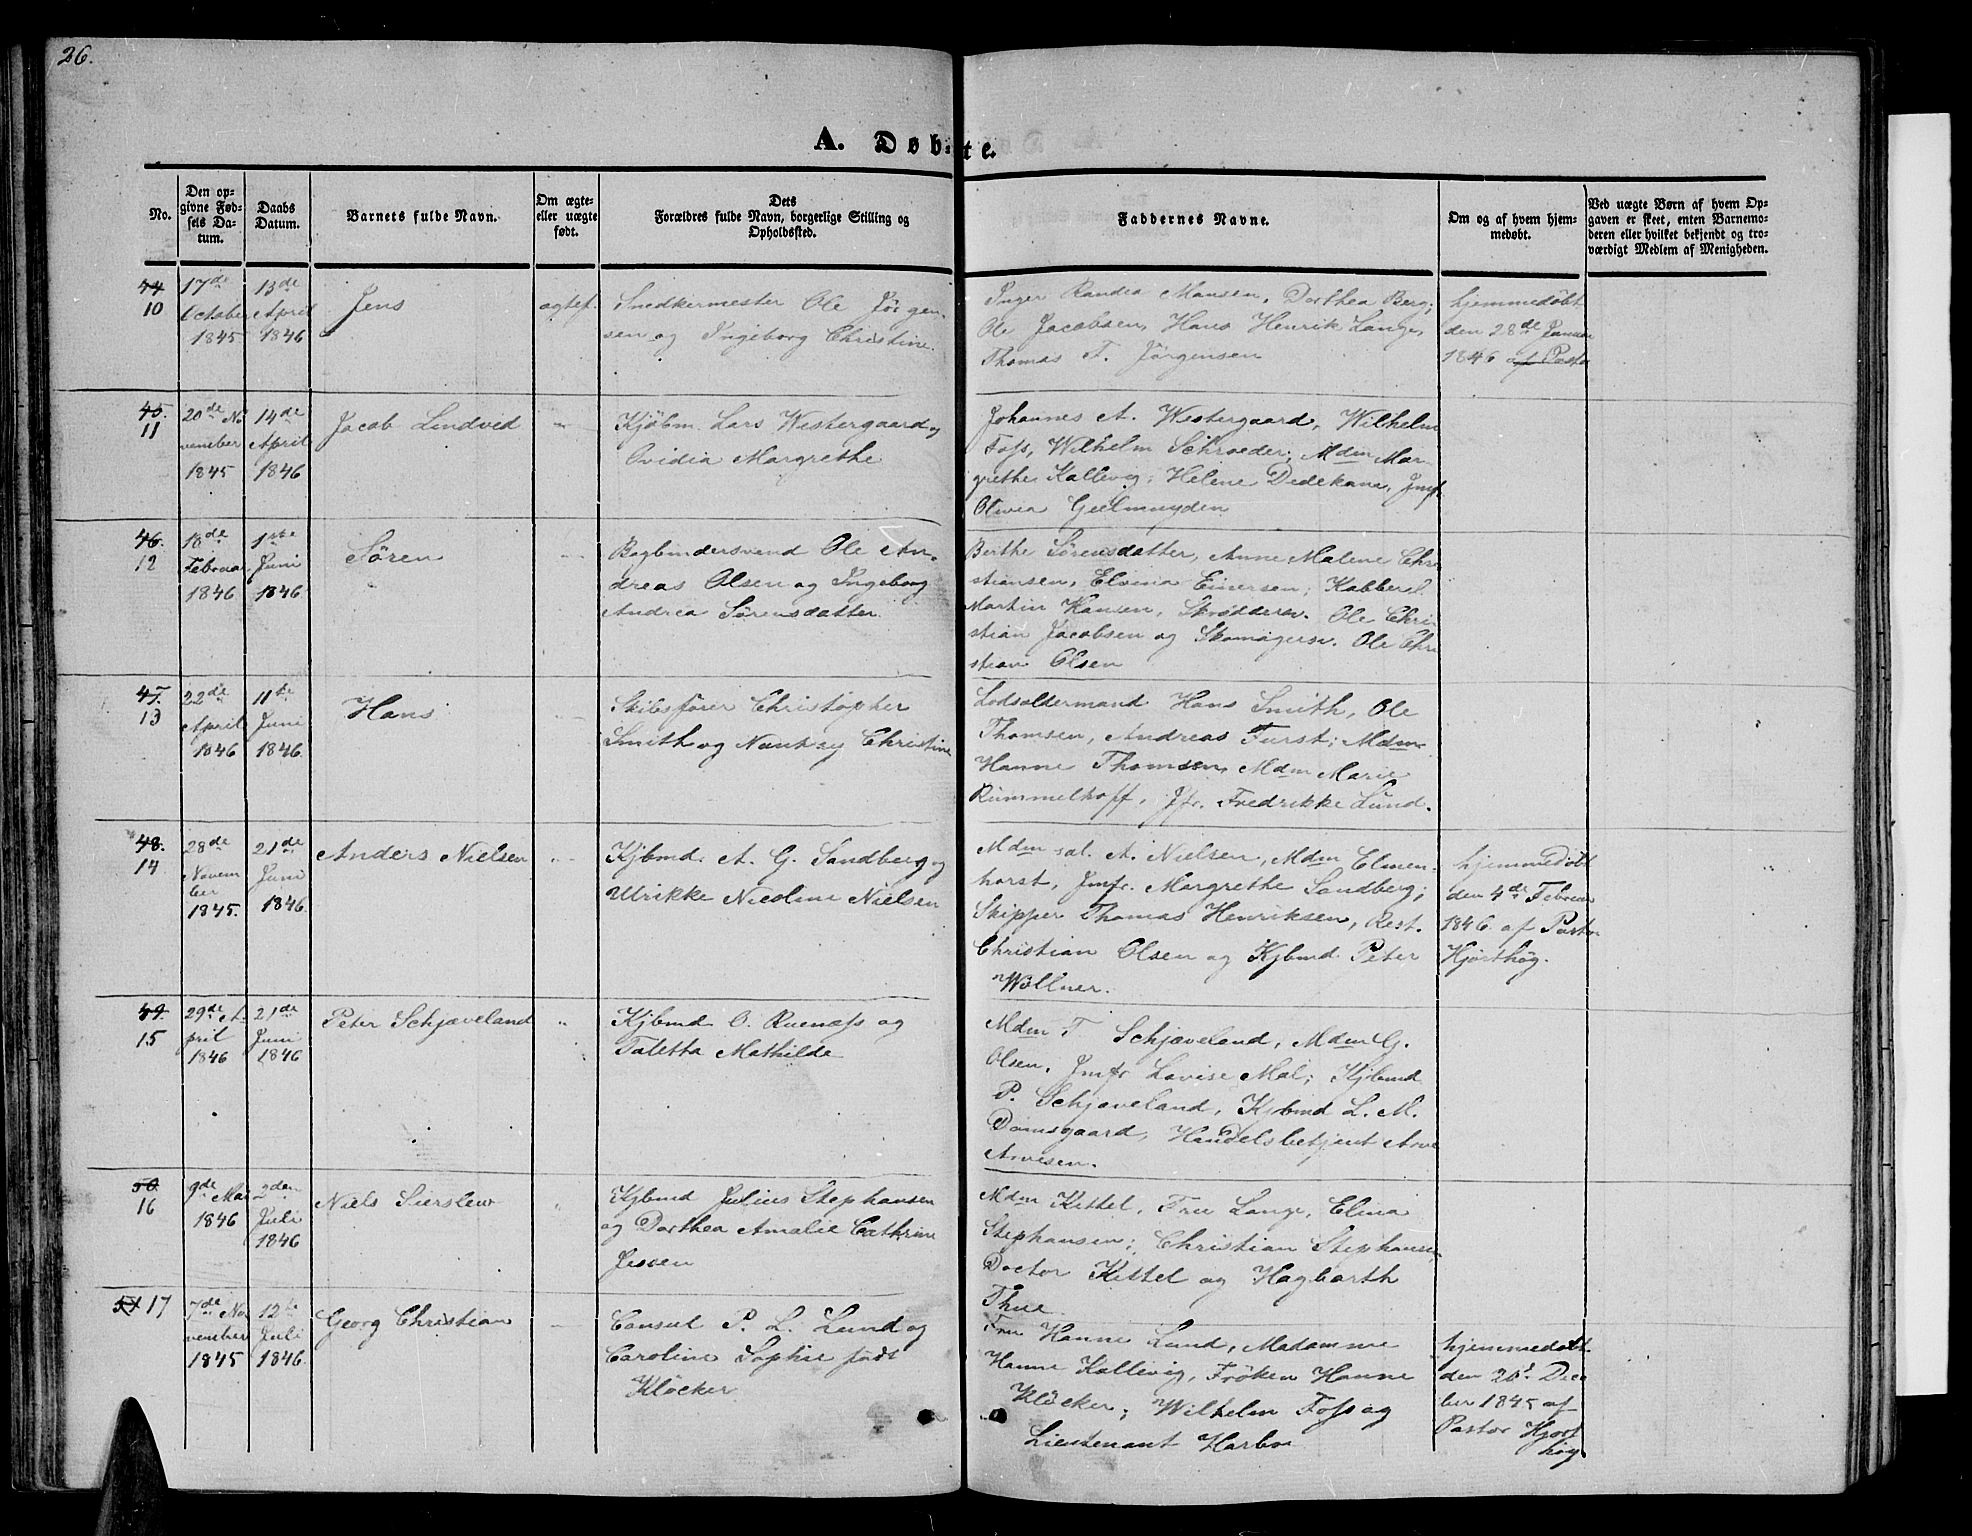 26.
A. Døbte.
No.
Den opgivne Fødsels Datum.
Daabs Datum.
Barnets fulde Navn.
Om ægte eller uægte født.
Dets Forældres fulde Navn, borgerlige Stilling og Opholdssted.
Faddernes Navne.
Om og af hvem hjemmedøbt.
Ved uægte Børn af hvem Opgaven er skeet, enten Barnemoderen eller hvilket bekjendt og troværdigt Medlem af Menigheden.
44
10
17de
October
1845
13de
April
1846
Jens
ægtef.
Snedkermester Ole Jörgen-
sen og Ingeborg Christine.
Inger Randea Mansen, Dorthea Berg;
Ole Jacobsen, Hans Henrik Lange,
Thomas F. Jörgensen
hjemmedöbt
den 28de Januar
1846 af Pastor
45.
11
20de No
vember
1845
14de
April
1846
Jacob Lindved
Kjöbm. Lars Westergaard og
Ovidia Margrethe
Johannes A. Westergaard, Wilhelm
Foss, Wilhelm Schroeder; Mdm Mar-
grethe Kallevig; Helene Dedekam, Jmf.
Olivia Geelmuyden
46.
12
18de
Februar
1846
1ste
Juni
1846
Sören
Bogbindersvend Ole An-
dreas Olsen og Ingeborg
Andrea Sörensdatter
Berthe Sörensdatter, Anne Malene Chri
stiansen, Elvina Einersen; Kabbersl.
Martin Hansen, Skrøddersv. Ole Chri-
stian Jacobsen og Skomagersv. Ole Chri
stian Olsen
47.
13
22de
April
1846
11te
Juni
1846
Hans
Skibsförer Christopher
Smith og Nankey Christine
Lodsoldermand Hans Smith, Ole
Thomsen, Andreas Furst; Mdm
Hanne Thomsen, Mdm Marie
Rummelhoff, Jfr. Fredrikke Lund.
48.
14
28de
Novem
ber
1845.
21de
Juni
1846
Anders Nielsen
Kjbmd. A. G. Sandberg og
Ulrikke Nicoline Nielsen
Mdm sal. A. Nielsen, Mdm Elmen-
horst, Jmfr. Margrethe Sandberg;
Skipper Thomas Henriksen, Rest.
Christian Olsen og Kjbmd Peter
Wöllner.
hjemmedöbt
den 4de Februar
1846 af Pastor
Hjorthög.
49
15
29de A-
pril
1846
21de
Juni
1846
Peter Schjæveland
Kjbmd O. Ruenæss og
Taletta Mathilde
Mdm T Schjæveland, Mdm G.
Olsen, Jmfr Lovise Mal; Kjbmd
P. Schjæveland, Kjbmd L. M.
Damsgaard, Handelsbetjent Arve
Arvesen.
50
16
9de Mai
1846
2den
Juli
1846
Niels Sierslew
Kjbmd Julius Stephansen
og Dorthea Amalie Cathrine
Jessen
Mdm Kittel, Fru Lange, Elina
Stephansen; Christian Stephansen
Doctor Kittel og Hagbarth
Thue
51 17
7de No
vember
1845
12te
Juli
1846
Georg Christian
Consul P. L. Lund og
Caroline Sophie födt
Klöcker
Fru Hanne Lund, Madamme
Hanne Kallevig, Fröken Hanne
Klöcker; Wilhelm Foss og
Lieutenant Harboe
hjemmedöbt
den Dece
ber 1845 af
Pastor Hjort
hög